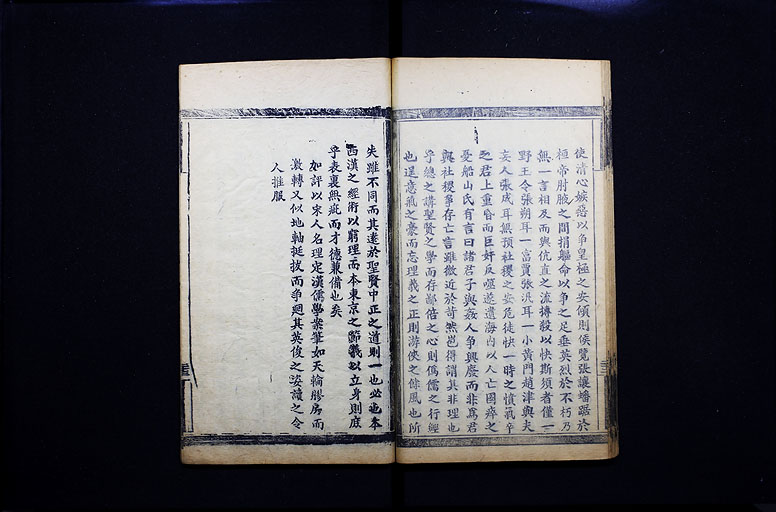 使清心嫉惡以争皇極之安傾則侯覽張讓蟠踞於
桓帝肘腋之間捐軀命以争之足垂英烈於不朽乃
無一言相及而與伉直之流搏殺以快斯須者僅一
野王令張朔耳一富賈張汎耳一小黃門趙津與夫
妄人張成耳無預社稷之安危徒快一時之憤氣卒
之君上重昏而巨奸反噬遂遺海内以人亡國瘁之
憂船山氏有言曰諸君子與姦人争興廢而非爲君
與社稷争存亡言雖微近於苛然豈得謂其非理也
乎總之講聖賢之學而存鄙倍之心則僞儒之行經
也逞意氣之豪而忘理義之正則游俠之餘風也所
失雖不同而其遠於聖賢中正之道則一也必也本
西漢之經術以窮理而本東京之節義以立身則庶
乎表裏無疵而才德兼備也矣
如評以宋人名理定漢儒學案筆如天輪膠房而
激轉又似地軸挺拔而争廻其英俊之姿讀之令
人推服